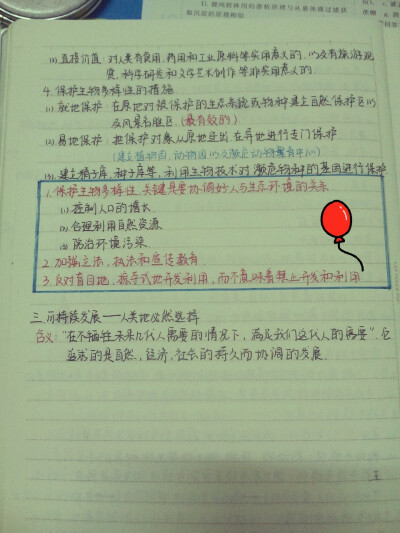 D.
(1) 直接价值: 对人类有食用、药用和工业原料等实用意义的,以及有旅游观
赏、科学研究和文学艺术创作等非实用意义的.
4. 保护生物多样性的措施
(1) 就地保护: 在原地对被保护的生态系统或物种建立自然保护区以
及风景名胜区. (最有效的)
(2) 易地保护: 把保护对象从原地迁出在异地进行专门保护
(建立植物园、动物园以及濒危动植物繁育中心)
(3) 建立精子库、种子库等,利用生物技术对濒危物种的基因进行保护
1. 保护生物多样性,关键是要协调好人与生态环境的关系
(1) 控制人口的增长
(2) 合理利用自然资源
(3) 防治环境污染.
2. 加强立法、执法和宣传教育
3. 反对盲目地、掠夺式地开发利用,而不意味着禁止开发和利用
三. 可持续发展——人类地必然选择
含义: “在不牺牲未来几代人需要的情况下,满足我们这代人的需要”. 它
追求的是自然、经济、社会的持久而协调的发展.